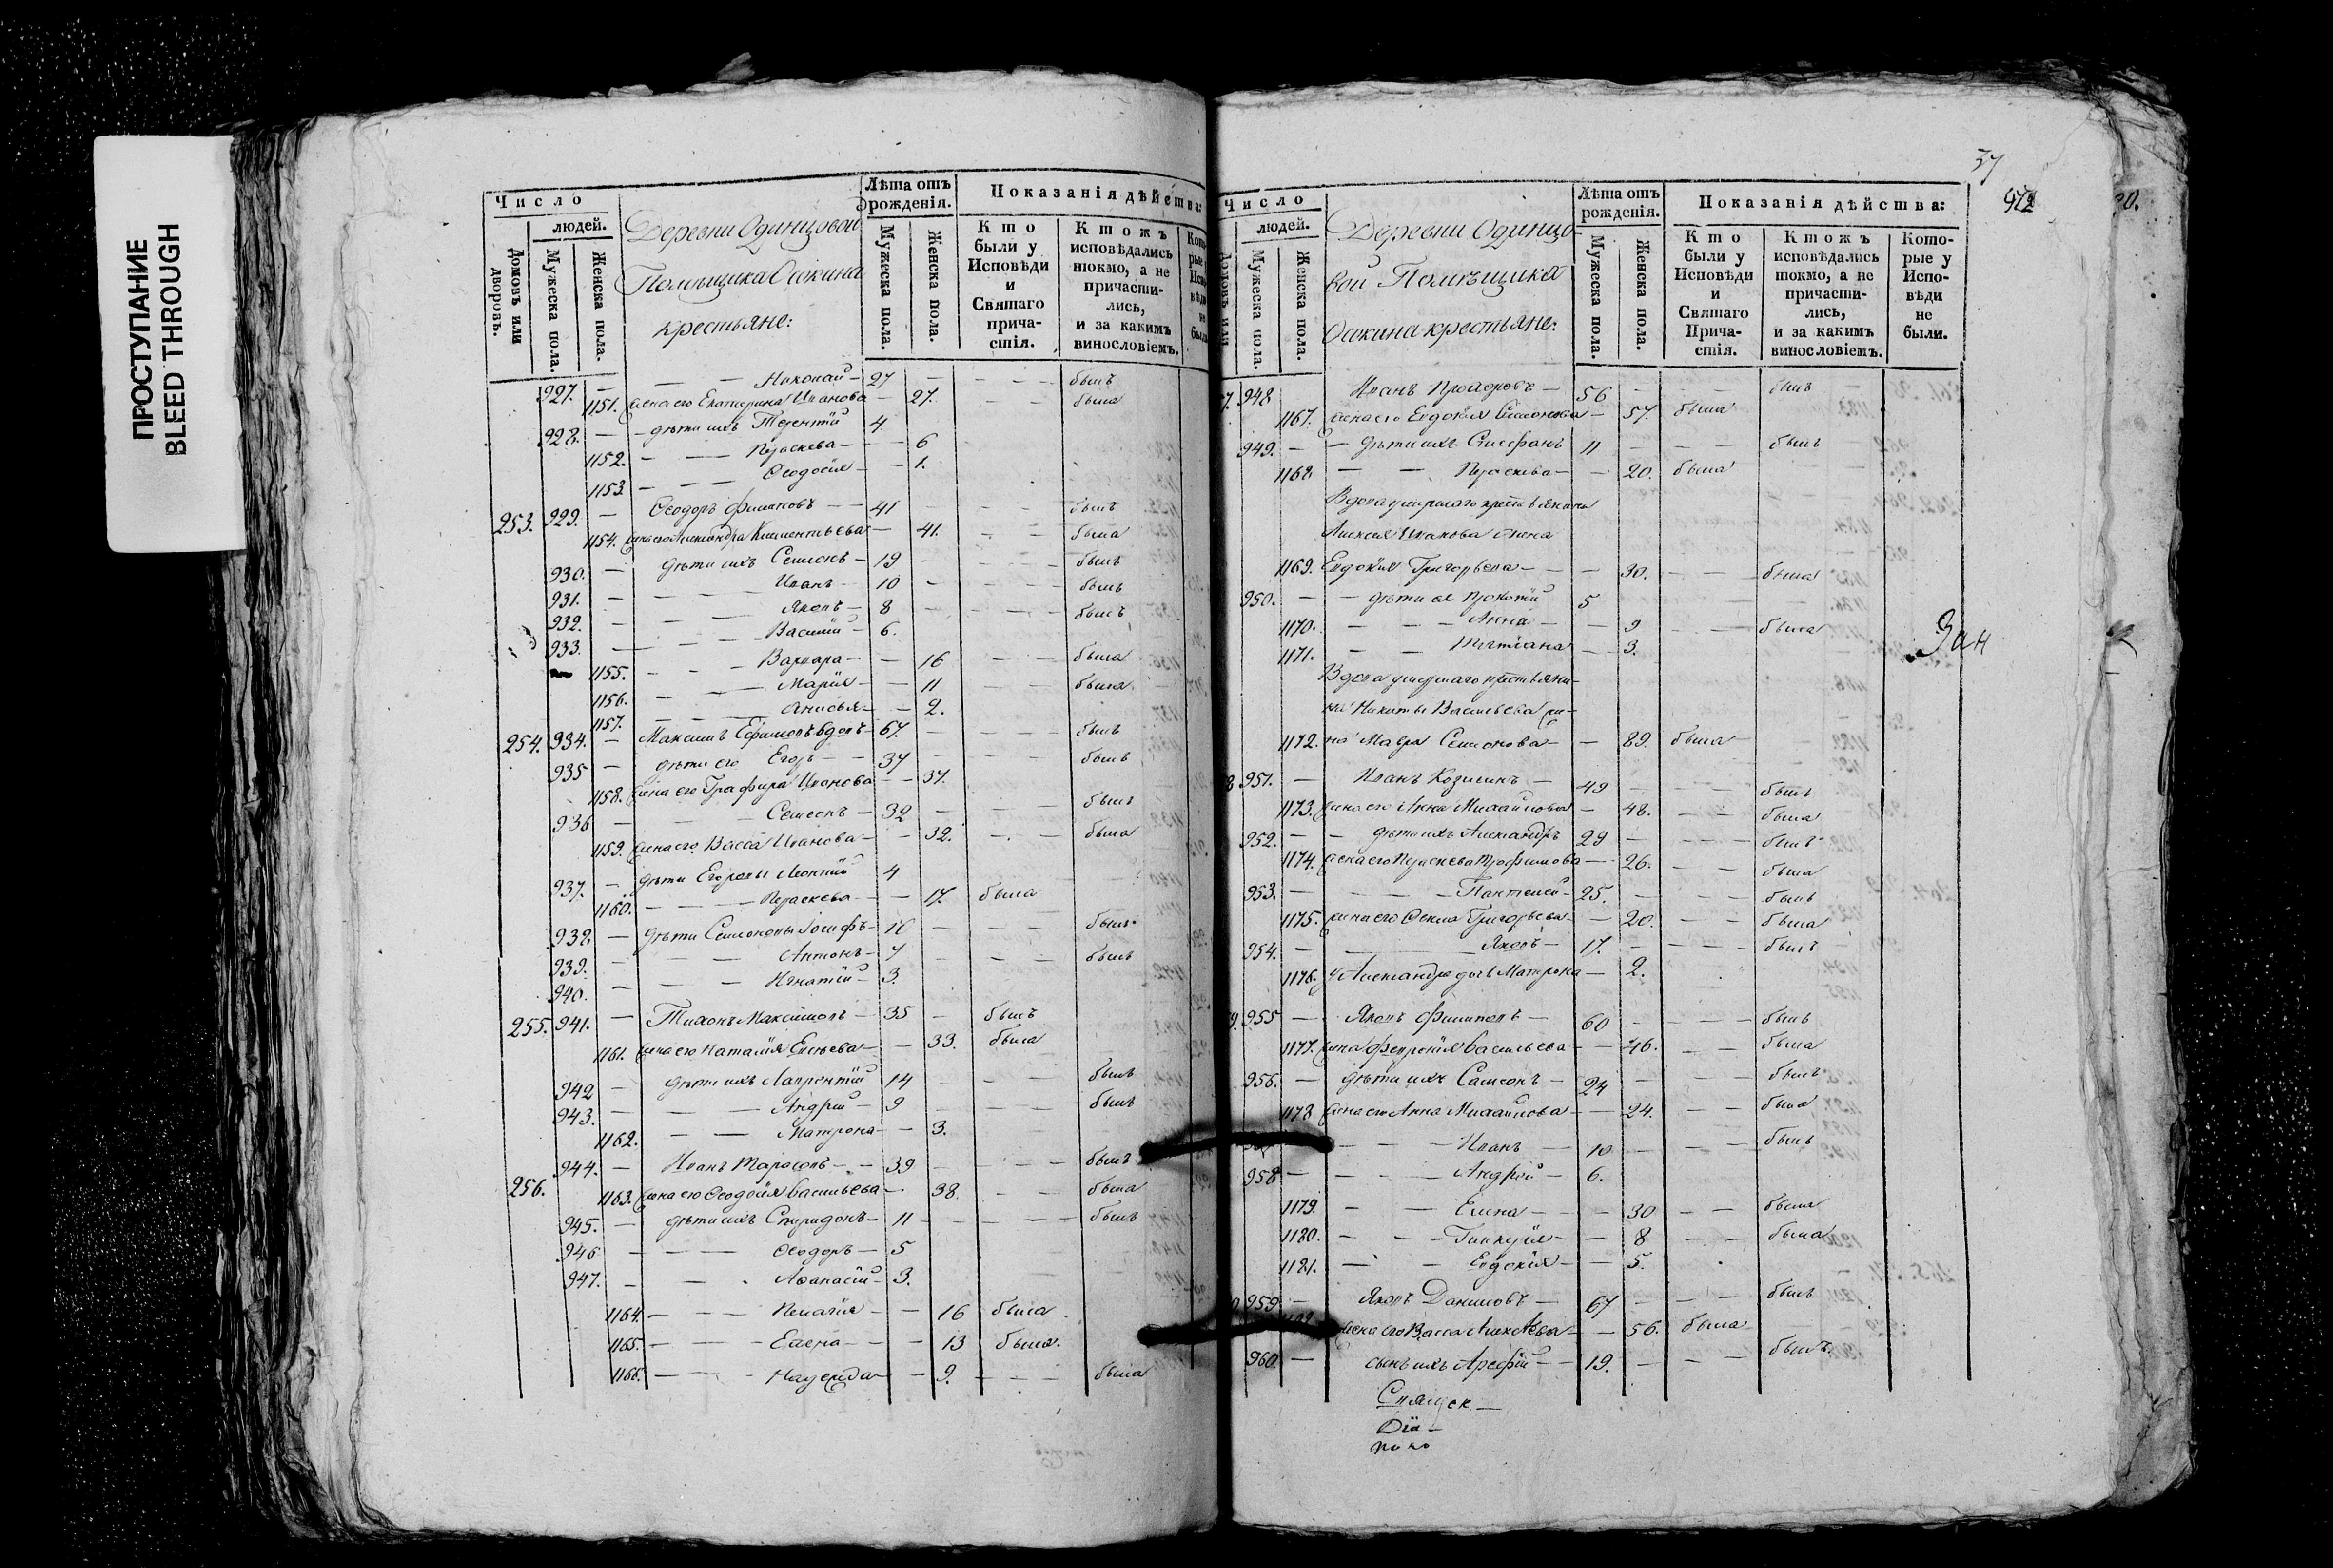 ПРОСТУПАНИЕ
BLEED THROUGH
Число
людей.
Домовъ или дворовъ.
Мужеска пола.
Женска пола.
Деревни Одинцовой
Помѣщика Осокина
крестьяне:
Лѣта отъ рожденія.
Мужеска пола.
Женска пола.
Показанія дѣйства:
Кто были у Исповѣди и Святаго причастія.
Ктожъ исповѣдались токмо, а не причастились, и за какимъ винословіемъ.
927. — — — Николай — 27 — — — былъ
1151. жена его Екатерина Иванова — 27. — — была
928. — — дѣти ихъ Терентій 4
1152. — — — Параскева — — 6
1153. — — — Ѳеодосія — — 1.
253. 929. — Ѳеодоръ — — 41 — — — былъ
1154. жена его Александра Климентьева — 41. — — была
930. — дѣти ихъ Семенъ — 19 — — — былъ
931. — — — Иванъ — 10 — — — былъ
932. — — — Яковъ — 8 — — — былъ
933. — — — Василій — 6.
1155. — — — Варвара — — 16 — — была
1156. — — — Марія — — 11 — — была
1157. — — — Анисья — — 2.
254. 934. — Максимъ Ефимовъ вдовъ — 67. — — — былъ
935 — дѣти его Егоръ — — 37 — — былъ
1158. жена его Графира Иванова — — 37.
936 — — — Семенъ — 32 — — — былъ
1159. жена его Васса Иванова — — 32. — — была
937. — дѣти Егоровы Леонтій 4
1160. — — — Параскева — — 17. была
938 — дѣти Семеновы Іосифъ — 10 — — — былъ
939. — — — Антонъ — 7 — — — былъ
940. — — — Игнатій — 3.
255. 941. — Тихонъ Максимовъ — 35 — былъ
1161. жена его Наталія Елисеева — — 33. была
942 — дѣти ихъ Лаврентій 14 — — — былъ
943. — — — Андрей — 9 — — — былъ
1162. — — — Матрона — — 3.
256. 944. — Иванъ Тарасовъ — — 39 — — — былъ
1163. жена его Ѳеодосія Васильева — 38. — — была
945. — дѣти ихъ Спиридонъ — 11 — — — былъ
946 — — — Ѳеодоръ — 5
947. — — — Аѳанасій — 3.
1164. — — — Пелагія — — 16 была
1165. — — — Елена — — 13 была.
1166. — — — Надежда — — 9. — — была
37
972
Число
людей.
Мужеска пола.
Женска пола.
Деревни Одинцо-
вой Помѣщика
Осокина крестьяне:
Лѣта отъ рожденія.
Мужеска пола.
Женска пола.
Показанія дѣйства:
Кто были у Исповѣди и Святаго Причастія.
Ктожъ исповѣдались токмо, а не причастились, и за какимъ винословіемъ.
Которые у Исповѣди не были.
948 Иванъ — 56 — — былъ
1167. жена его Евдокія Симонова — 57. была
949. — — дѣти ихъ Стефанъ 11 — — — былъ
1168 — — Параскева — — 20. была
Вдова умершаго крестьянина
Алексея Иванова жена
1169. Евдокія Григорьева — — — 30. — — была
950. — — дѣти ея Прокопій 5
1170. — — — Анна — — 9 — — была
1171. — — Татіана — — 3.
Вдова умершаго крестьяни-
на Никиты Васильева же-
1172. на Мавра Семенова — — 89. была
951. — Иванъ Козминъ — 49 — былъ
1173. жена его Анна Михайлова — 48. — — была
952. — — дѣти ихъ Александръ 29 — — — былъ
1174. жена его Параскева Трофимова — 26. — — была
953. — — — Пантелей — 25. — — — былъ
1175. жена его Ѳекла Григорьева — — 20. — — была
954. — — — Яковъ — 17. — — — былъ
1176. у Александра дочь Матрона — 2.
955 — Яковъ Филиповъ — 60 — — — былъ
1177. жена Февронія Васильева — — 46. — — была
956. — дѣти ихъ Самсонъ — 24 — — — былъ
1178 жена его Анна Михайлова — — 24. — — была
— — — Иванъ — 10 — — — былъ
958 — — — Андрей — 6.
1179. — — Елена — — — 30 — — была
1180. — — — Гликерія — — 8 — — была
1181. — — Евдокія — — 5.
959. — Яковъ Даниловъ — 67 — — — былъ
жена его Васса Алексѣева — — 56. была
960. — сынъ ихъ Арефій — — 19. — — — былъ